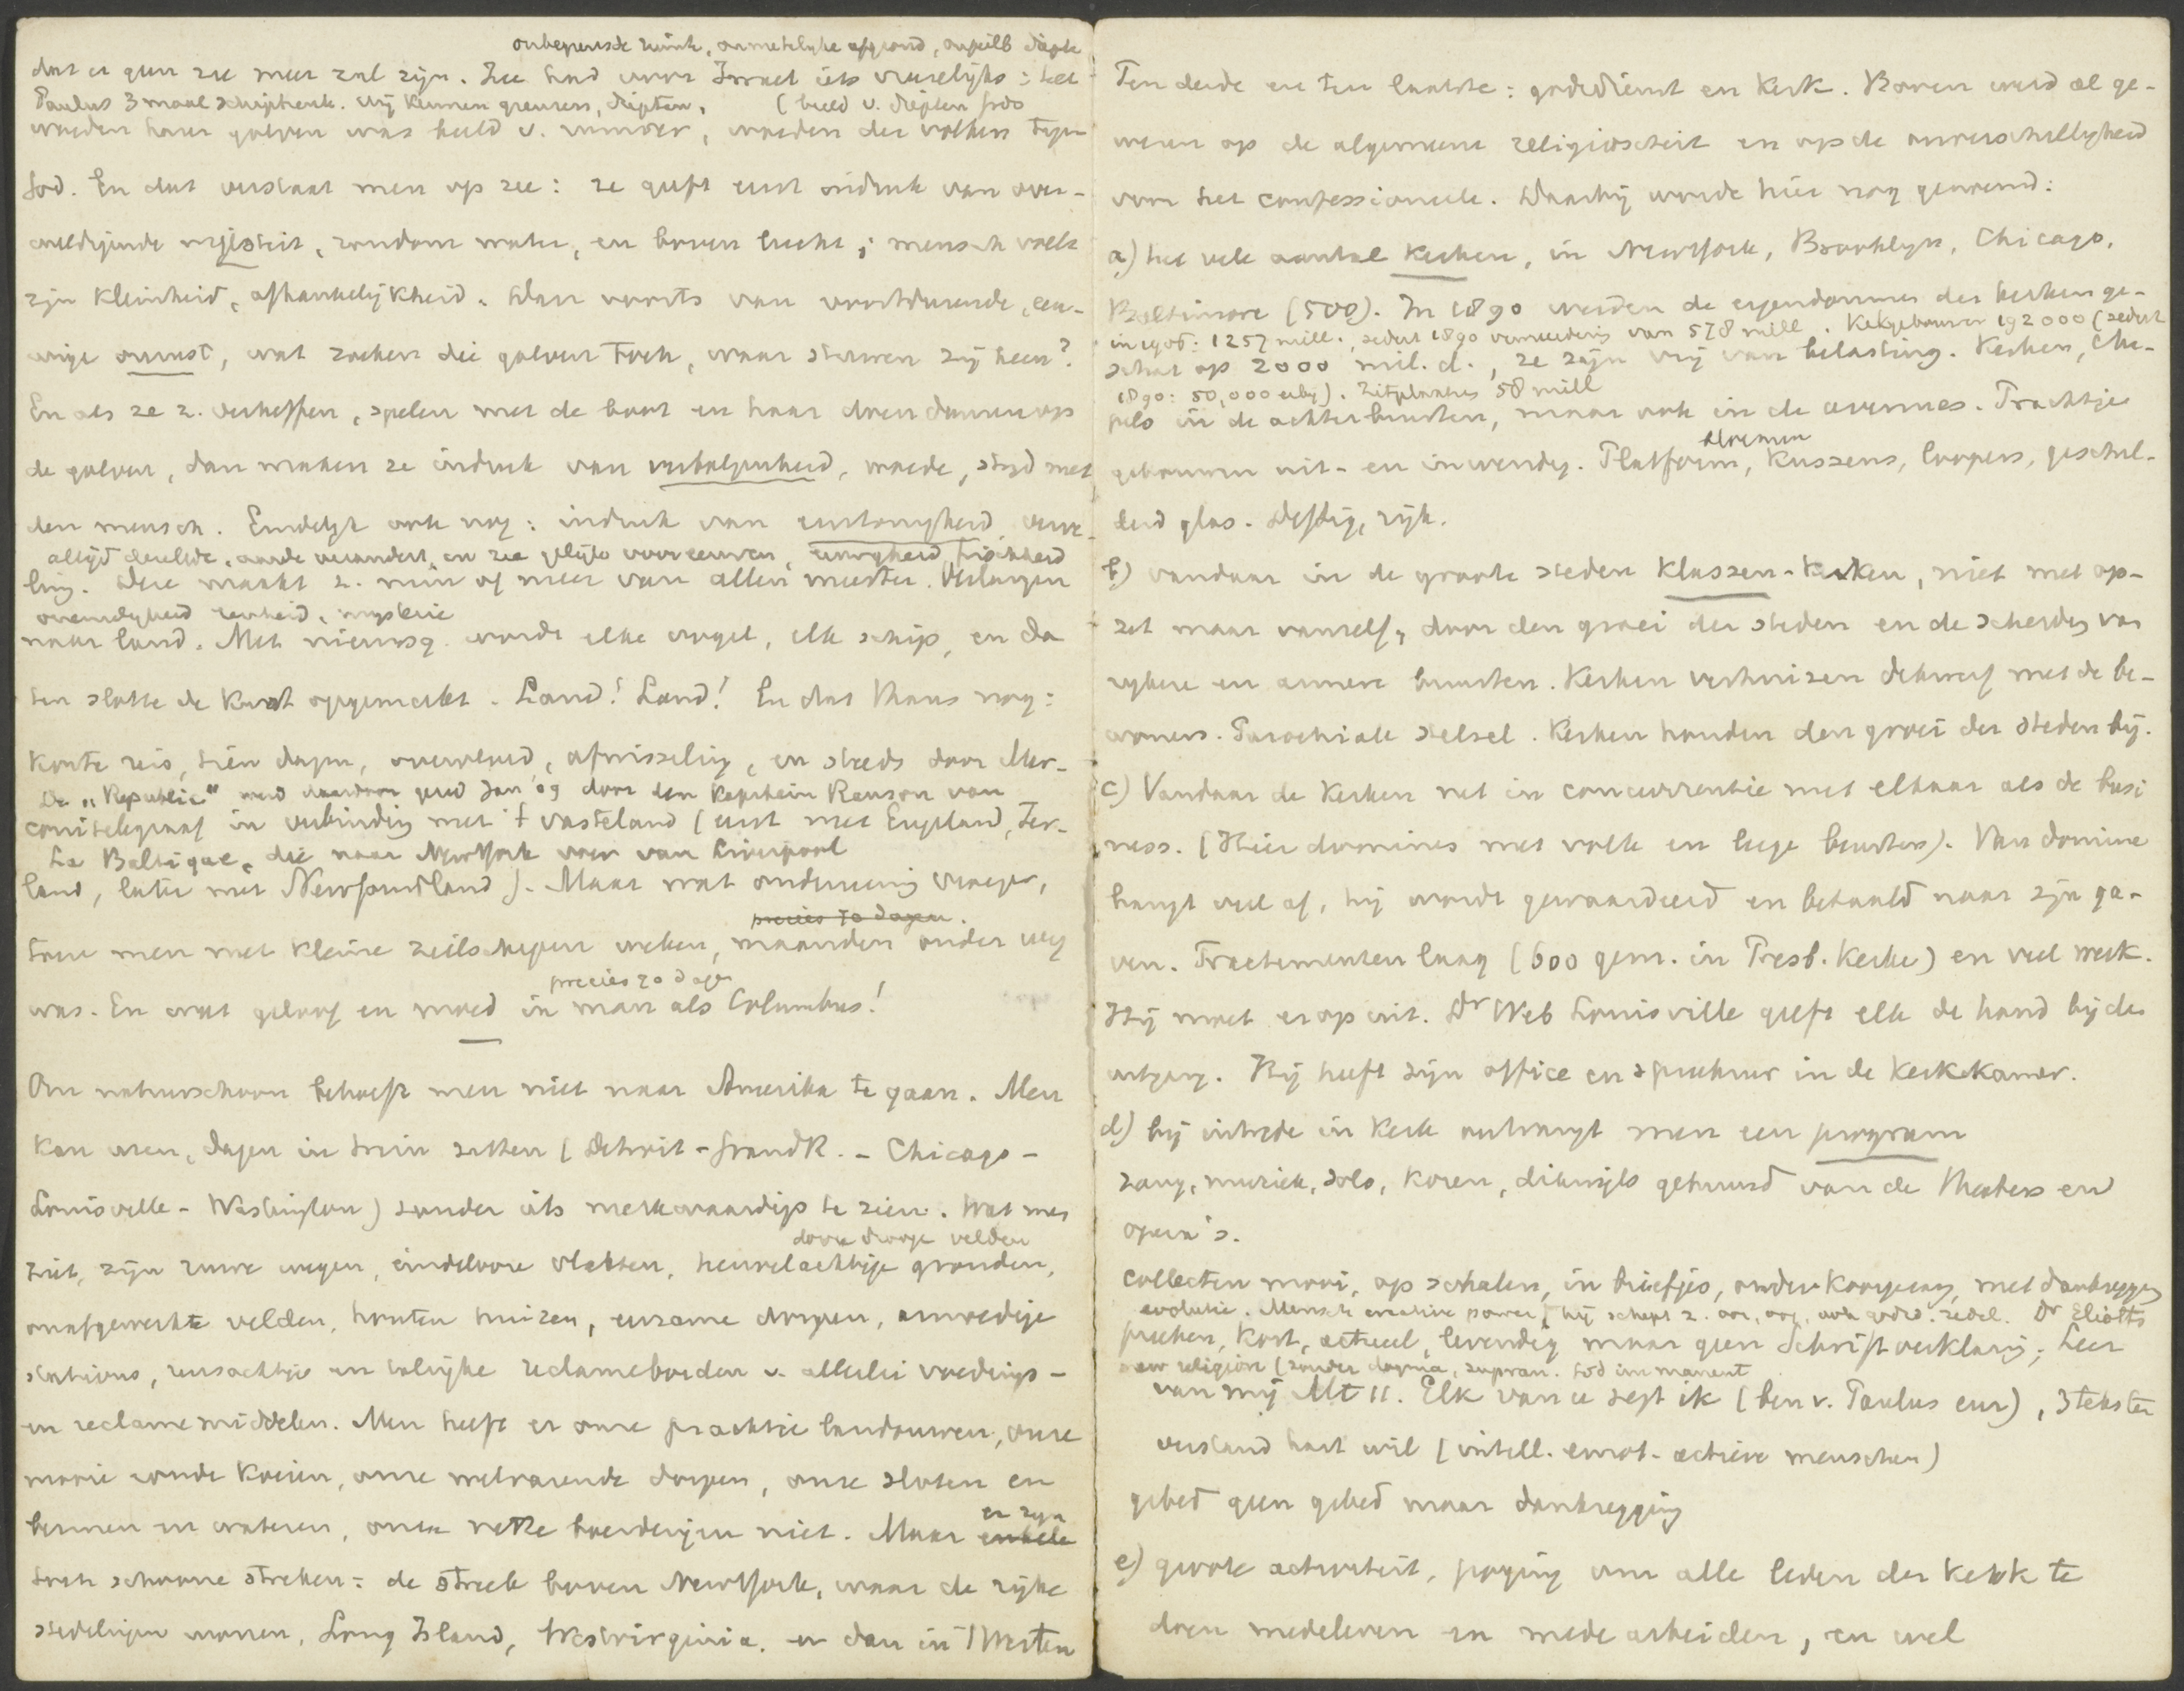 onbegrensde ruimte, onmetelijke afgrond, onpeilb diepte
dat er geen zee meer zal zijn. Zee had voor Israel iets vreeselijks: het
Paulus 3 maal schipbreuk. Wij kennen grenzen, diepten, (beeld v. diepten Gods
woeden harer golven was beeld v. woeden der volken tegen
God. En dat verstaat men op zee: ze geeft eerst indruk van over-
weldigende majesteit, rondom water, en boven lucht; mensch voelt
zijn kleinheid, afhankelijkheid. Dan voorts van voortdurende, eeu-
wige onrust, wat zoeken die golven toch, waar streven zij heen?
En als ze z. verheffen, spelen met de boot en haar doen dansen op
de golven, dan maken ze indruk van verbolgenheid, woede, strijd met
den mensch. Eindelijk ook nog: indruk van eentonigheid, verve-
altijd dezelfde, aarde verandert, en zee gelijk voor eeuwen, eeuwigheid, frischheid
ling. Deze maakt z. min of meer van allen meester. Verlangen
oneindigheid reinheid, mysterie
naar land. Met nieuwsg. wordt elke vogel, elk schip, en da
ten slotte de kust opgemerkt. Land! Land! En dat thans nog:
korte reis, tien dagen, overvloed, afwisseling, en steeds door Mar-
De "Republic" werd daardoor gered Jan '09 door den Kapitein Ranson van
conitelegraaf in verbinding met 't vasteland (eerst met Engeland, Ier-
La Baltique, die naar NewYork voer van Liverpool
land, later met Newfoundland). Maar wat onderneming vroeger,
precies 70 dagen.
toen men met kleine zeilschepen weken, maanden onder weg
precies 70 dagen
was. En wat geloof en moed in man als Columbus!
Om natuurschoon behoeft men niet naar Amerika te gaan. Men
kan uren, dagen in trein zitten (Detroit - Grand R. - Chicago -
Louisville - Washington) zonder iets merkwaardigs te zien. Wat men
dorre droge velden
ziet, zijn ruwe wegen, eindelooze vlakten, heuvelachtige gronden,
onafgewerkte velden, houten huizen, eenzame dorpen, onoogelijke
stations, reusachtige en leelijke reclameborden v. allerlei voedings-
en reclame middelen. Men heeft er onze prachtige landouwen, onze
mooie bonte koeien, onze welvarende dorpen, onze sloten en
er zijn
bermen en wateren, onze nette boerderijen niet. Maar enkele
toch schoone streken: de streek boven NewYork, waar de rijke
stedelingen wonen, Long Island, Westvirginia. en dan in 't Westen
Ten derde en ten laatste: godsdienst en kerk. Boven werd al ge-
wezen op de algemeene religiositeit en op de onverschilligheid
voor het confessioneele. Daarbij worde hier nog genoemd:
a) het vele aantal kerken, in NewYork, Brooklyn, Chicago,
Baltimore (500). In 1890 werden de eigendommen der kerken ge-
in 1906: 1257 mill., sedert 1890 vermeerdering van 578 mill. Kerkgebouwen 192000 (sedert
schat op 2000 mil. d., ze zijn vrij van belasting. Kerken, cha-
1890: 50,000 erbij). Zitplaatsen 58 mill
pels in de achterbuurten, maar ook in de avenues. Prachtige
bloemen
gebouwen uit- en inwendig. Platform, kussens, loopers, geschil-
derd glas. Deftig, rijk.
b) vandaar in de groote steden klassen-kerken, niet met op-
zet maar vanzelf, door den groei der steden en de scheiding van
rijkere en armere buurten. Kerken verhuizen dikwerf met de be-
woners. Parochiale stelsel. Kerken houden den groei der steden bij.
c) Vandaar de kerken net in concurrentie met elkaar als de busi
ness. (Hier dominés met volle en leege beurten). Van dominé
hangt veel af, hij wordt gewaardeerd en betaald naar zijn ga-
ven. Tractementen laag (600 gem. in Presb. Kerke) en veel werk.
Hij moet er op uit. Dr Web Louisville geeft elk de hand bij den
uitgang. Hij heeft zijn office en spreekuur in de kerkekamer.
d) bij intrede in kerk ontvangt men een program
zang, muziek, solo, koren, dikwijls gehuurd van de theaters en
opera's.
collecten mooi, op schalen, in briefjes, onder koorgezang, met dankzegging
evolutie. Mensch creative power, hij schept z. oor, oog, ook godsd. zedel. Dr Eliotts
preeken, kort, actueel, levendig maar geen Schriftverklaring; Leer
new religion (zonder dogma, supran. God immanent
van mij Mt 11. Elk van u zegt ik (ben v. Paulus enz), 3 teksten
verstand hart wil (intell. emot. actieve menschen)
gebed geen gebed maar dankzegging
e) groote activiteit, poging om alle leden der kerk te
doen medeleven en mede arbeiden, en wel